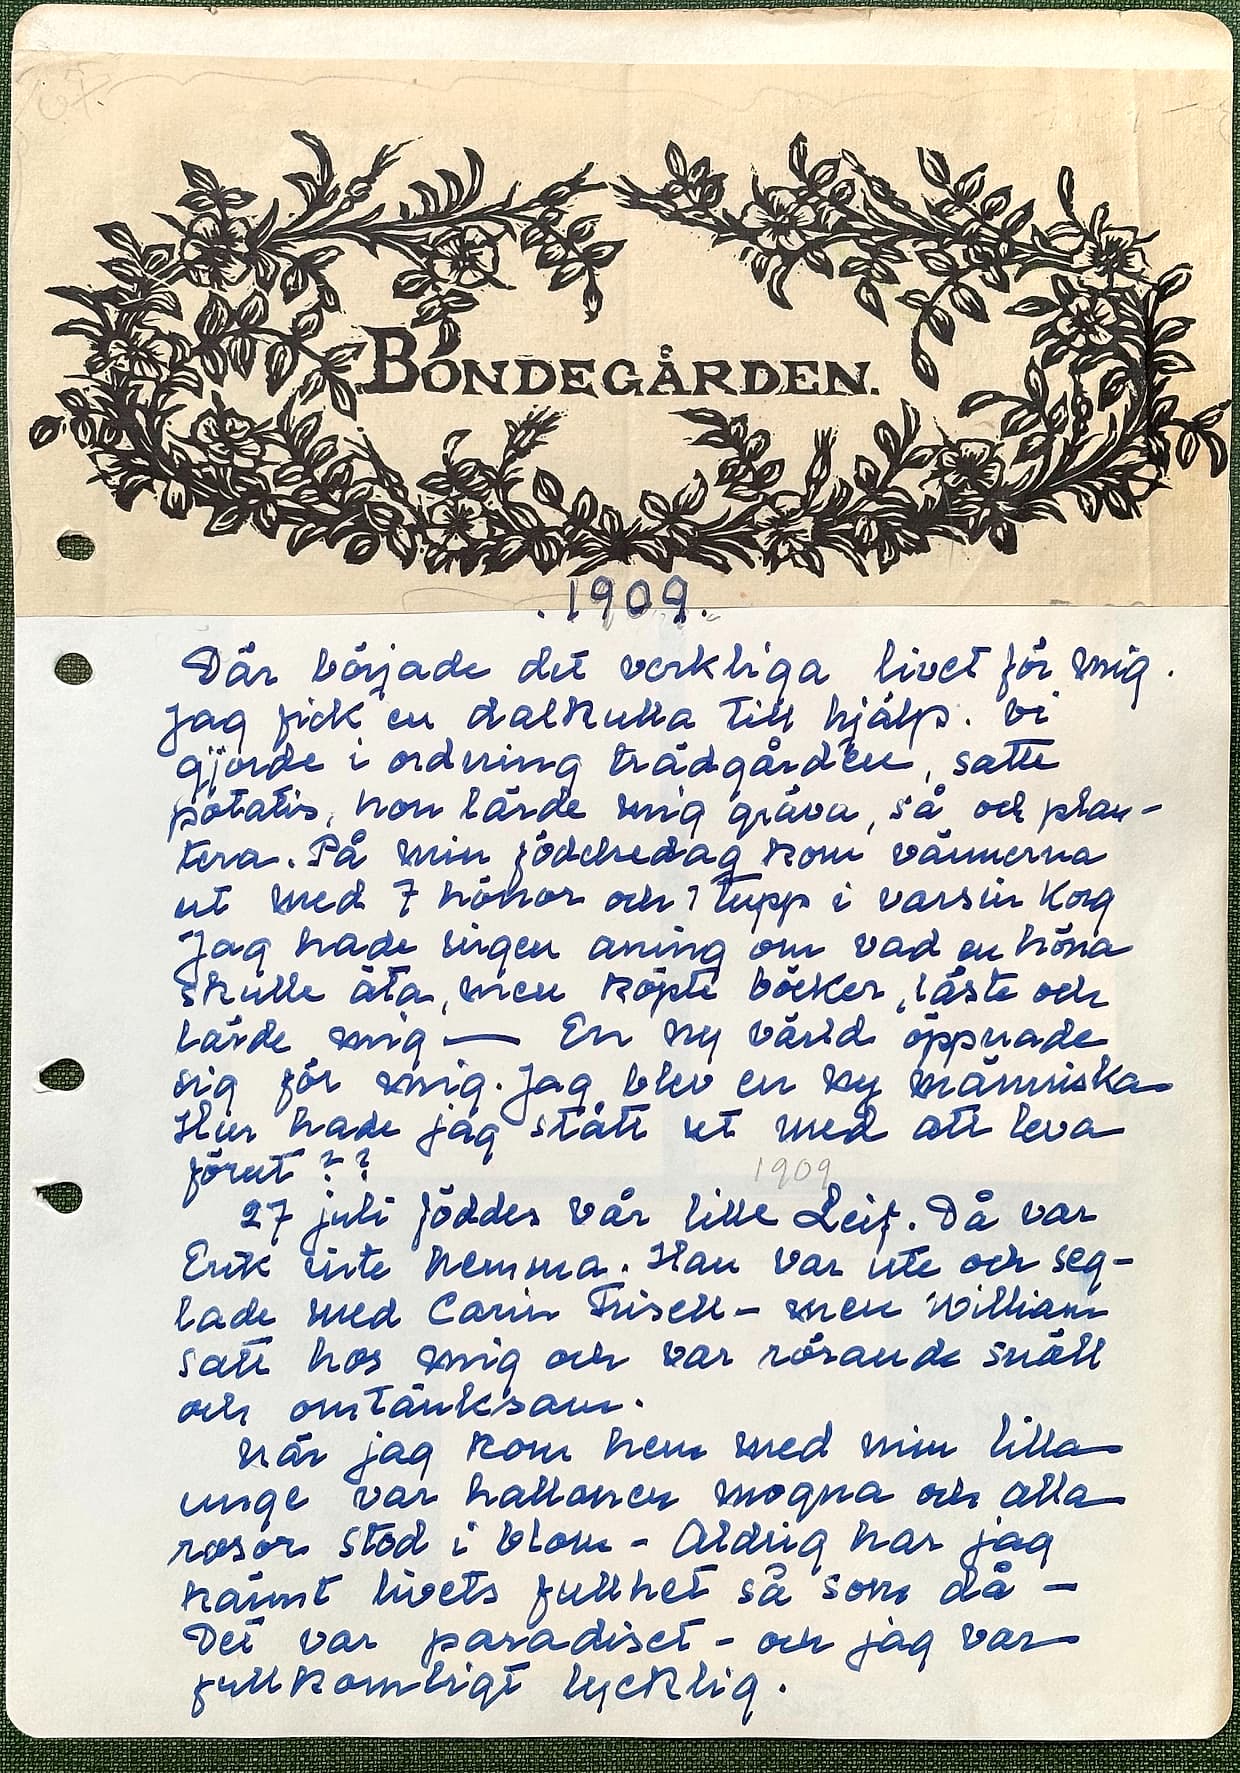 BONDEGÅRDEN.
.1909.
Där började det verkliga livet för mig.
Jag fick en dalkulla till hjälp. Vi
gjorde i ordning trädgården, satte
potatis, hon lärde mig gräva, så och plan-
tera. På min födelsedag kom vännerna
ut med 7 hönor och 1 tupp i varsin korg
Jag hade ingen aning om vad en höna
skulle äta, men köpte böcker, läste och
lärde mig — En ny värld öppnade
sig för mig. Jag blev en ny människa
Hur hade jag stått ut med att leva
förut ??
1909
27 juli föddes vår lille Leif. Då var
Erik inte hemma. Han var ute och seg-
lade med Carin Frisell - men William
satt hos mig och var rörande snäll
och omtänksam.
När jag kom hem med min lilla
unge var hallonen mogna och alla
rosor stod i blom - Aldrig har jag
känt livets fullhet så som då -
Det var paradiset - och jag var
fullkomligt lycklig.